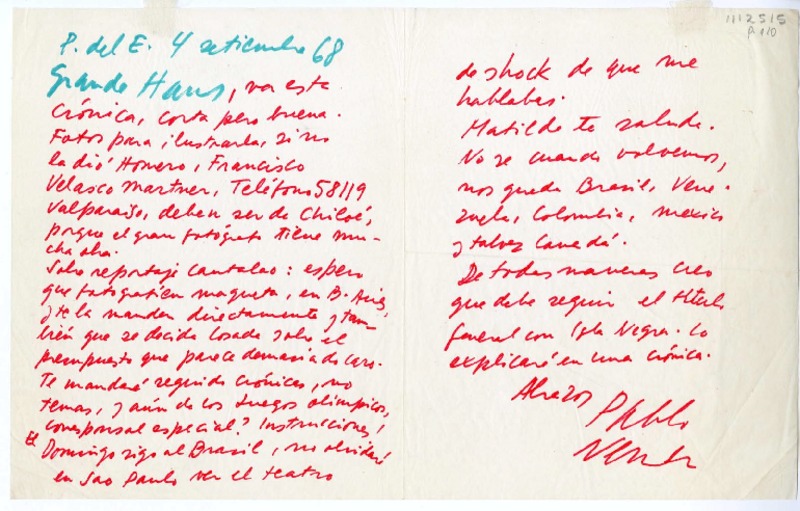 1112515
P. del E. 4 setiembre 68
Grande Hans, va esta
Crónica, corta pero buena.
Fotos para ilustrarla, si no
la dió Homero, Francisco
Velasco Martner, Teléfono 58119
Valparaíso, deben ser de Chiloé,
porque el gran fotógrafo tiene mu-
cha obra.
Sobre reportaje Cantalao: espero
que fotografíen maqueta, en B. Aires,
y te la manden directamente y tam-
bién que se decida Losada sobre el
presupuesto que parece demasiado caro.
Te mandaré seguido crónicas, no
temas, y aún de los Juegos olímpicos,
corresponsal especial? Instrucciones!
El Domingo sigo al Brasil, no olvidaré
en Sao Paulo ver el teatro
de shock de que me
hablabas.
Matilde te saluda.
No se cuando volvemos,
nos queda Brasil, Vene-
zuela, Colombia, Mexico
y talvez Canadá.
De todas maneras creo
que debe seguir el título
general con Isla Negra. Lo
explicaré en una crónica.
Abrazos
Pablo
Neruda